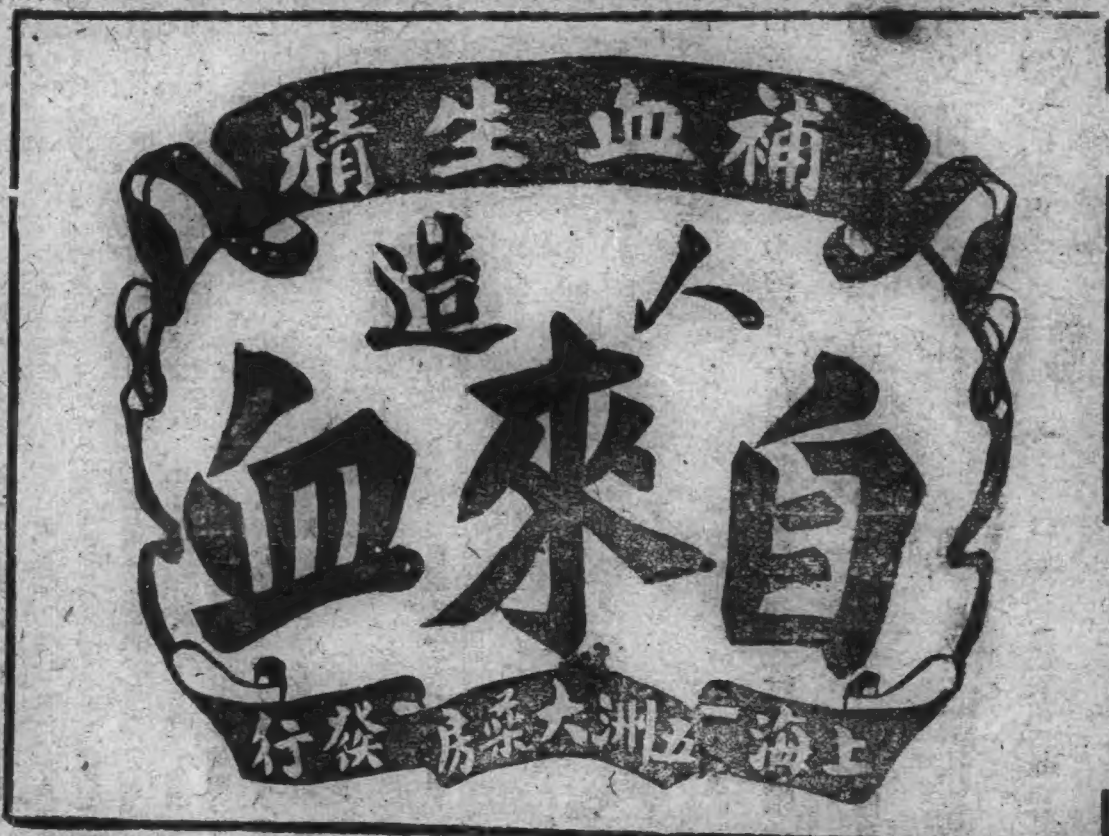 補血生精
人造
自來血
上海五洲大薬房發行